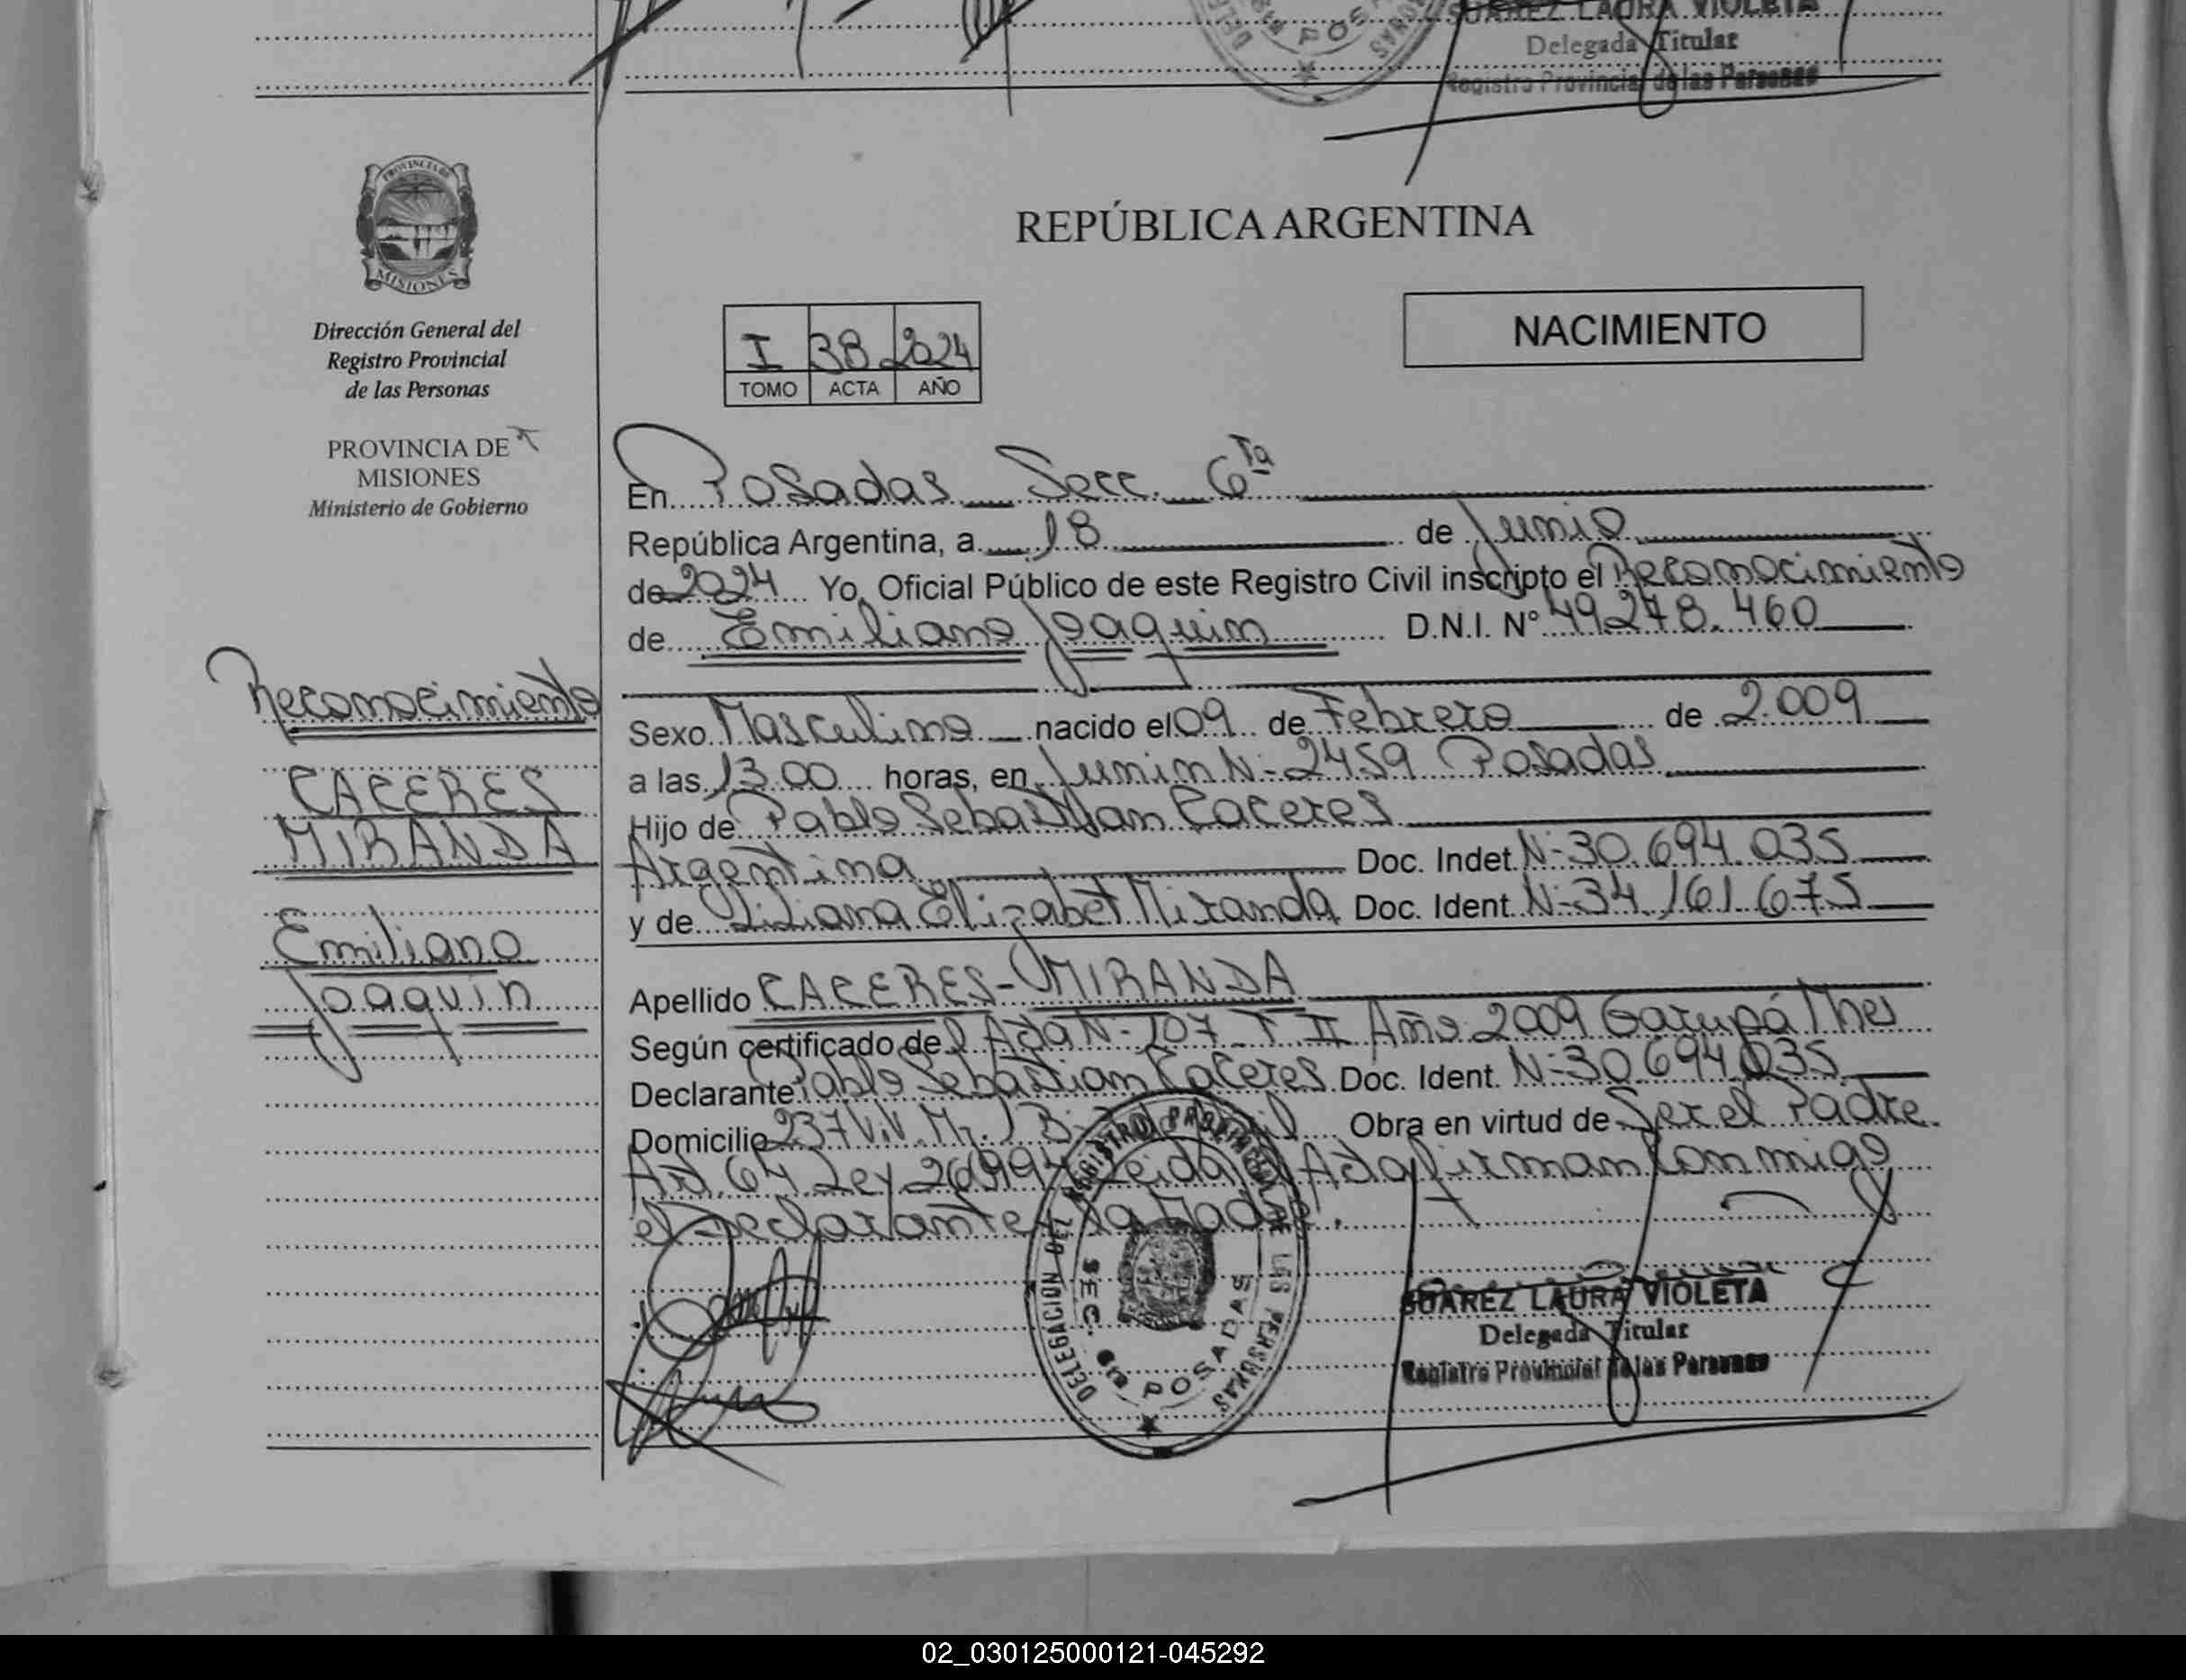 SUAREZ LAURA VIOLETA
Delegada Titular
Registro Provincial de las Personas
PROVINCIA DE
MISIONES
Dirección General del
Registro Provincial
de las Personas
PROVINCIA DE
MISIONES
Ministerio de Gobierno
Reconocimiento
CACERES
MIRANDA
Emiliano
Joaquin
REPÚBLICA ARGENTINA
NACIMIENTO
I 38 2024
TOMO ACTA AÑO
En Posadas Secc. 6ta
República Argentina, a 18 de Junio
de 2024 Yo, Oficial Público de este Registro Civil inscripto el Reconocimiento
de Emiliano Joaquin D.N.I. N° 49.278.460
Sexo Masculino nacido el 09 de Febrero de 2.009
a las 13.00 horas, en Junin N- 2459 Posadas
Hijo de Pablo Sebastian Caceres
Argentina Doc. Indet. N- 30.694.035
y de Liliana Elizabet Miranda Doc. Ident. N- 34.161.675
Apellido CACERES - MIRANDA
Según certificado del Acta N- 107 T II Año 2009 Garupá Mnes
Declarante Pablo Sebastian Caceres Doc. Ident. N- 30.694.035
Domicilio 237 Viv. Obra en virtud de Ser el Padre
Art. 64 Ley 26.994 Leida el Acta firman conmigo
el Declarante y la Madre.
DELEGACION DEL REGISTRO PROVINCIAL DE LAS PERSONAS
SEC. 6ta POSADAS
SUAREZ LAURA VIOLETA
Delegada Titular
Registro Provincial de las Personas
02_030125000121-045292